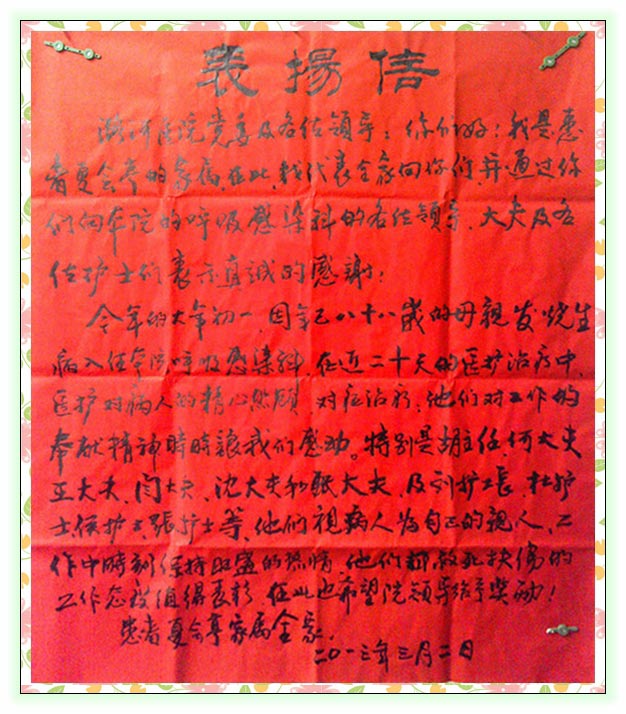 表揚信
潞河医院党委及各位领导：你们好！我是患
者夏会亭的家属，在此，我代表全家向你们，并通过你
们向本院的呼吸感染科的各位领导、大夫及各
位护士们表示真诚的感謝！
今年的大年初一，因年已八十八歲的母親发烧生
病入住本院呼吸感染科，在近二十天的医护治疗中，
医护对病人的精心照顾，对症治疗，他们对工作的
奉献精神時時讓我们感动。特别是胡主任、何大夫
王大夫、闫大夫、沈大夫和大夫，及刘护士長、杜护
士、护士、張护士等，他们視病人为自己的親人，工
作中時刻保持旺盛的热情，他们救死扶傷的
工作态度值得表彰，在此也希望院领导给予奖励！
患者夏会亭家属全家.
二〇一三年三月二日